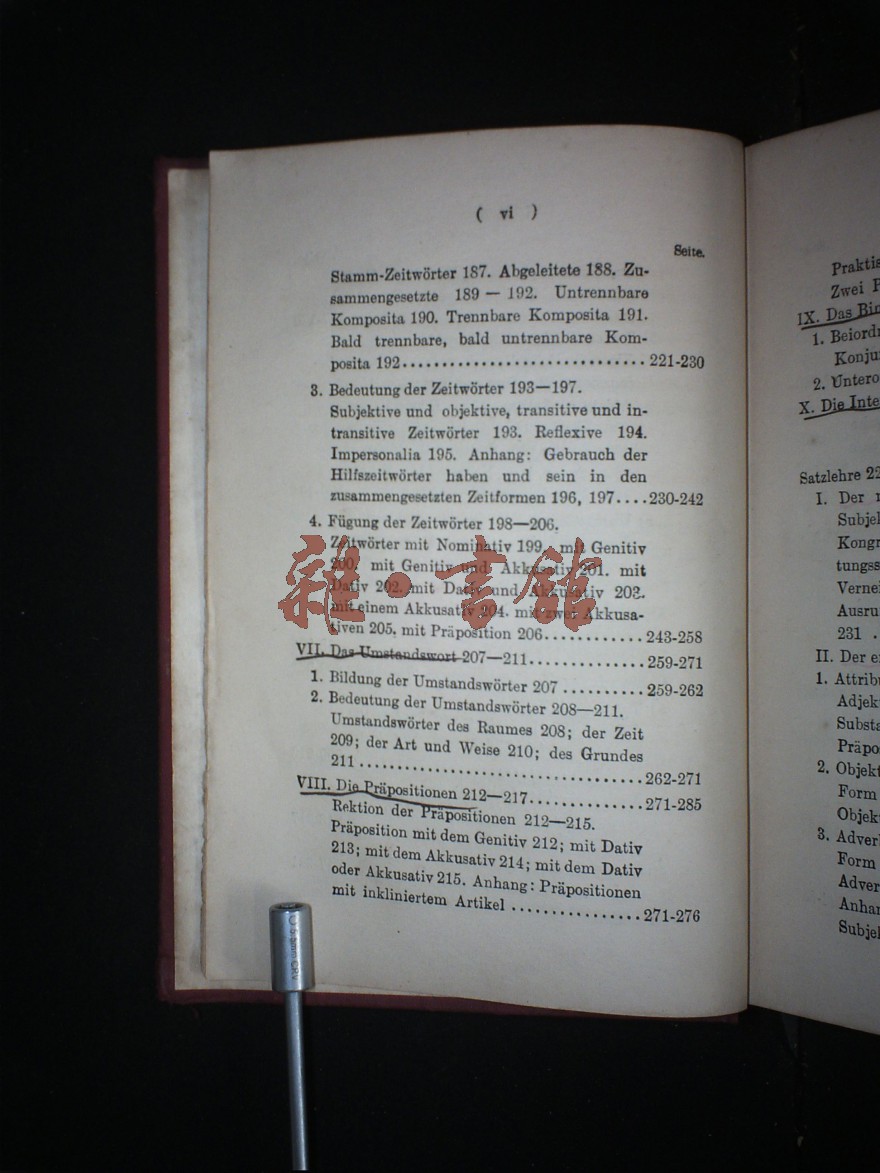 ( vi )
Seite.
Stamm-Zeitwörter 187. Abgeleitete 188. Zu-
sammengesetzte 189 — 192. Untrennbare
Komposita 190. Trennbare Komposita 191.
Bald trennbare, bald untrennbare Kom-
posita 192..............................221-230
3. Bedeutung der Zeitwörter 193—197.
Subjektive und objektive, transitive und in-
transitive Zeitwörter 193. Reflexive 194.
Impersonalia 195. Anhang: Gebrauch der
Hilfszeitwörter haben und sein in den
zusammengesetzten Zeitformen 196, 197....230-242
4. Fügung der Zeitwörter 198—206.
Zeitwörter mit Nominativ 199. mit Genitiv
200. mit Genitiv und Akkusativ 201. mit
Dativ 202. mit Dativ und Akkusativ 203.
mit einem Akkusativ 204. mit zwei Akkusa-
tiven 205. mit Präposition 206............243-258
VII. Das Umstandswort 207—211..............259-271
1. Bildung der Umstandswörter 207 ..........259-262
2. Bedeutung der Umstandswörter 208—211.
Umstandswörter des Raumes 208; der Zeit
209; der Art und Weise 210; des Grundes
211 ...................................262-271
VIII. Die Präpositionen 212—217..............271-285
Rektion der Präpositionen 212—215.
Präposition mit dem Genitiv 212; mit Dativ
213; mit dem Akkusativ 214; mit dem Dativ
oder Akkusativ 215. Anhang: Präpositionen
mit inkliniertem Artikel ................271-276
雜·書館
Praktis
Zwei P
IX. Das Bin
1. Beiord
Konju
2. Untero
X. Die Inte
Satzlehre 22
I. Der
Subje
Kongr
tungss
Vernei
Ausru
231 .
II. Der e
1. Attrib
Adjek
Substa
Präpo
2. Objekt
Form
Objek
3. Adver
Form
Adver
Anhan
Subjel
5.5mm CRV